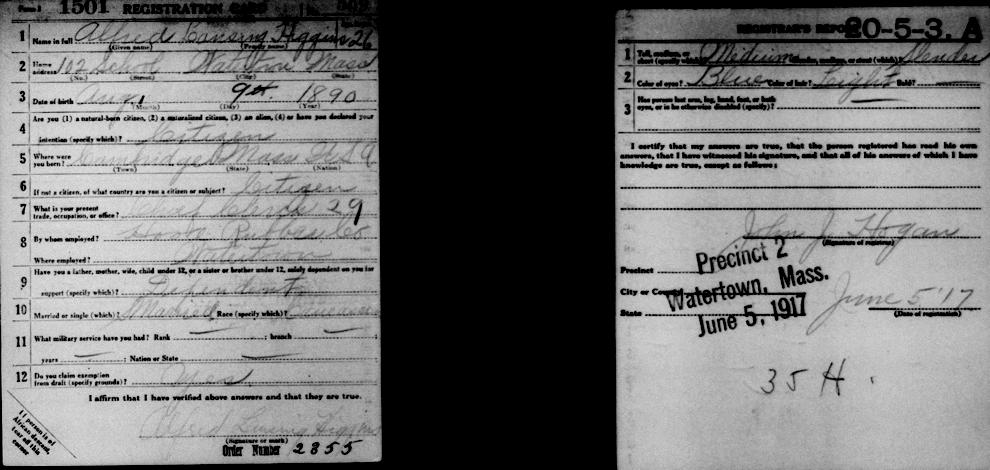 Form 1 1501 REGISTRATION CARD No.
1 Name in full Alfred Higgins 26
(Given name) (Family name)
2 Home address 102 School Watertown Mass
(No.) (Street) (City) (State)
3 Date of birth Aug. 9th 1890
(Month) (Day) (Year)
Are you (1) a natural-born citizen, (2) a naturalized citizen, (3) an alien, (4) or have you declared your
4 intention (specify which)? Citizen
5 Where were you born? Cambridge Mass
(Town) (State) (Nation)
6 If not a citizen, of what country are you a citizen or subject? Citizen
7 What is your present trade, occupation, or office? Clerk 29
8 By whom employed? Hood Rubber Co
Where employed? Watertown
9 Have you a father, mother, wife, child under 12, or a sister or brother under 12, solely dependent on you for
support (specify which)? Dependent
10 Married or single (which)? Married Race (specify which)?
11 What military service have you had? Rank — ; branch — ;
years — ; Nation or State —
12 Do you claim exemption from draft (specify grounds)? yes
I affirm that I have verified above answers and that they are true.
Alfred Higgins
(Signature or mark)
If person is of African descent, tear off this corner
Order Number 2855
REGISTRAR'S REPORT 20-5-3. A
1 Tall, medium, or short (specify which)? Medium Slender, medium, or stout (which)? Slender
2 Color of eyes? Blue Color of hair? Light Bald?
3 Has person lost arm, leg, hand, foot, or both eyes, or is he otherwise disabled (specify)?
I certify that my answers are true, that the person registered has read his own
answers, that I have witnessed his signature, and that all of his answers of which I have
knowledge are true, except as follows:
John J. Hogan
(Signature of registrar)
Precinct Precinct 2
City or County Watertown, Mass.
State June 5, 1917
June 5 '17
(Date of registration)
35 H.